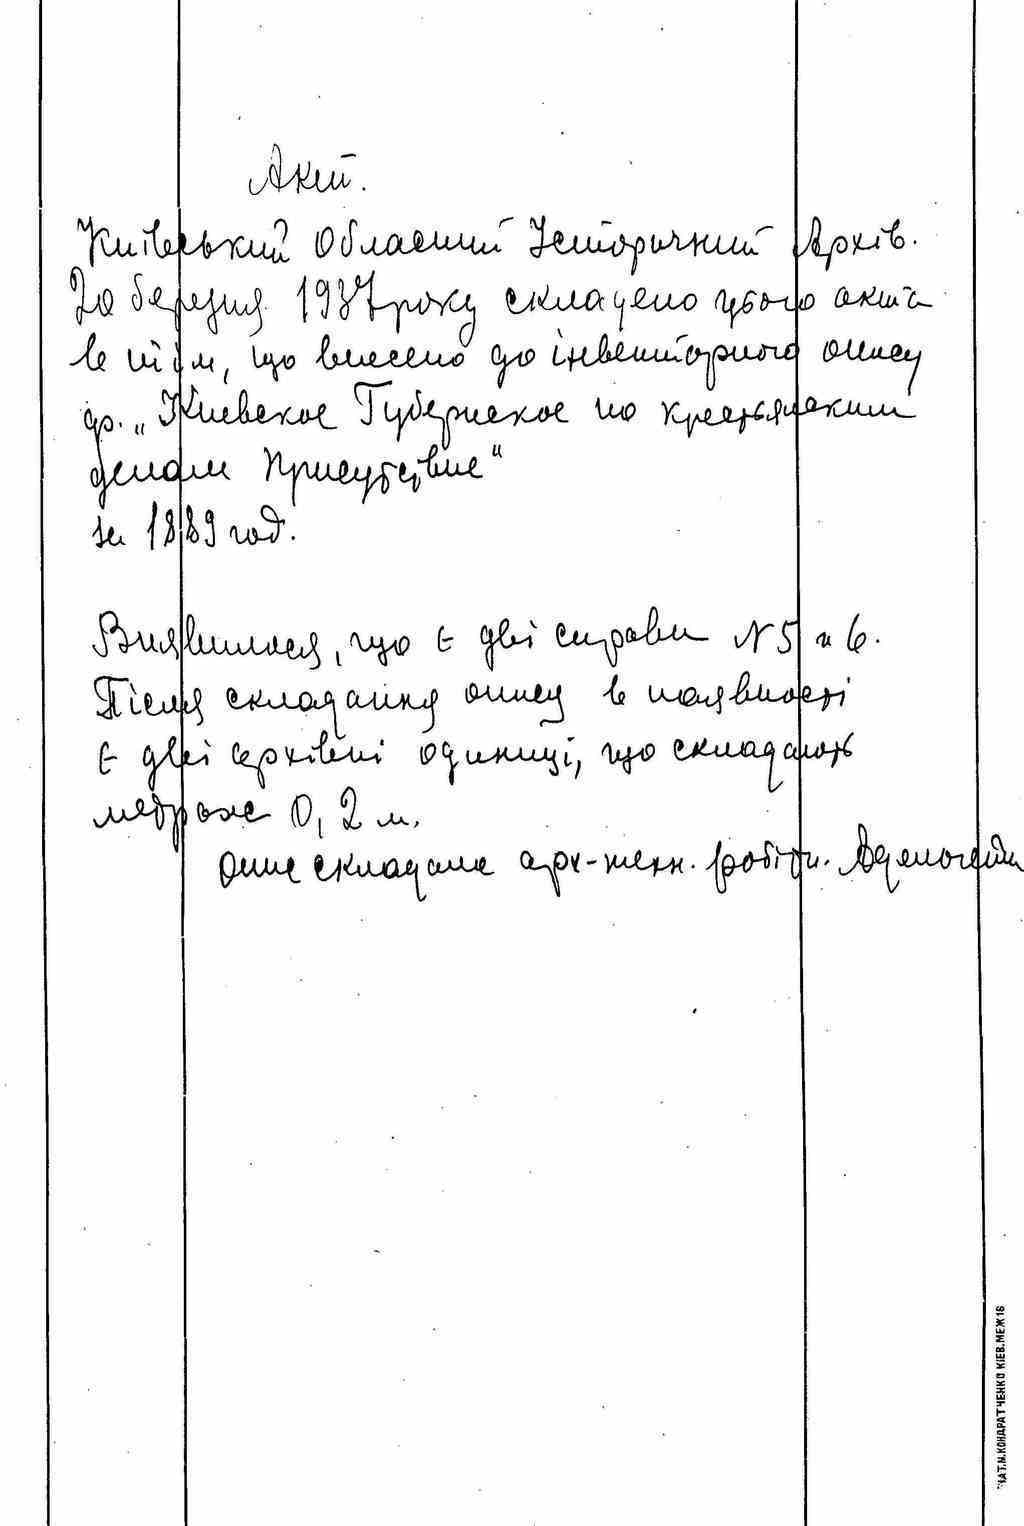 Акт.
Київський Обласний Історичний Архів.
20 березня 1937 року складено цього акта
в тім, що внесено до інвенторного опису
ф. „Киевское Губернское по крестьянским
делам Присутствие“
за 1889 год.
Виявилося, що є дві справи N 5 и 6.
Після складання опису в наявності
є дві архівні одиниці, що складають
метраж 0,2 м.
Опис складала арх-техн. робітн.
ЧАТ.М.КОНДРАТЧЕНКО КІЕВ.МЕЖ16